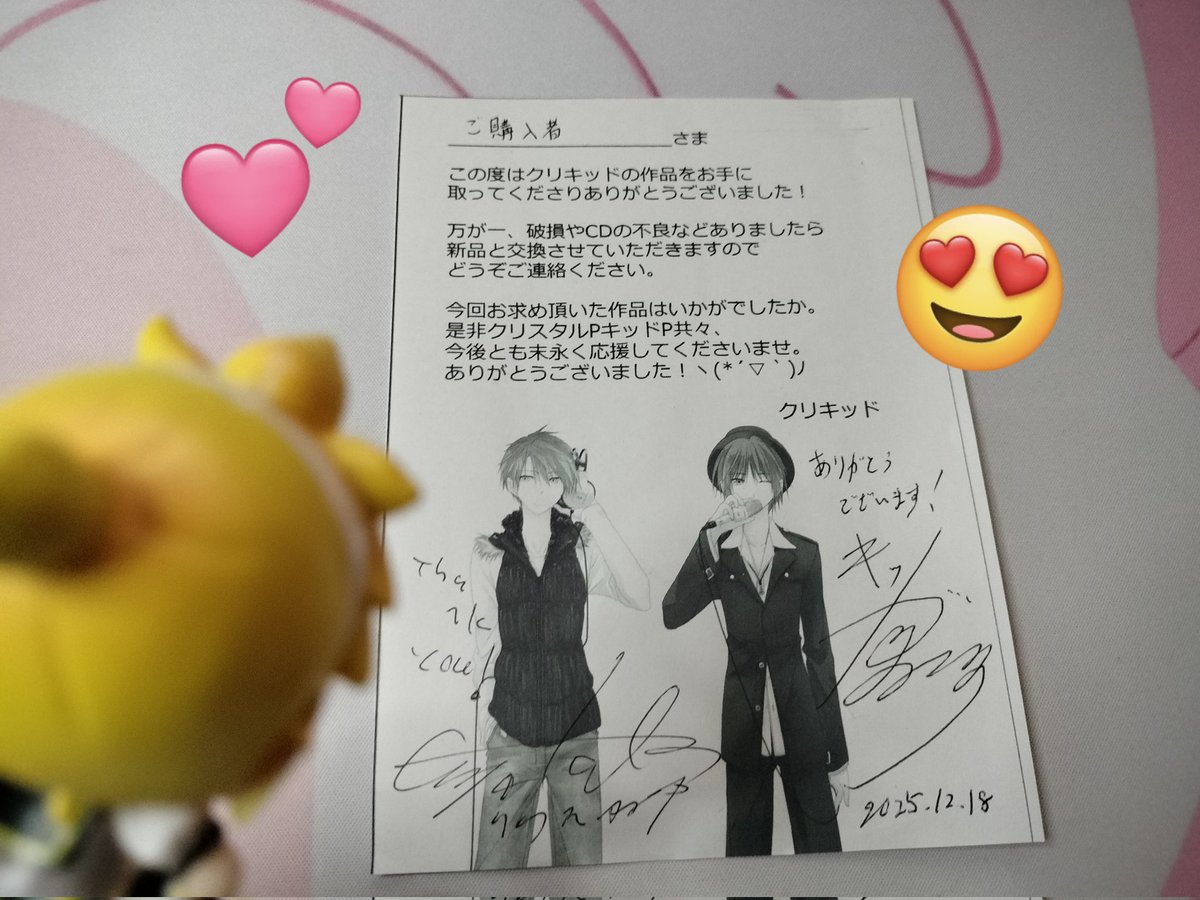 ご購入者 さま
この度はクリキッドの作品をお手に
取ってくださりありがとうございました！
万が一、破損やCDの不良などありましたら
新品と交換させていただきますので
どうぞご連絡ください。
今回お求め頂いた作品はいかがでしたか。
是非クリスタルPキッドP共々、
今後とも末永く応援してくださいませ。
ありがとうございました！ヽ(*´▽｀)ﾉ
クリキッド
ありがとう
ございます！
Tha
nk
you!
2025.12.18